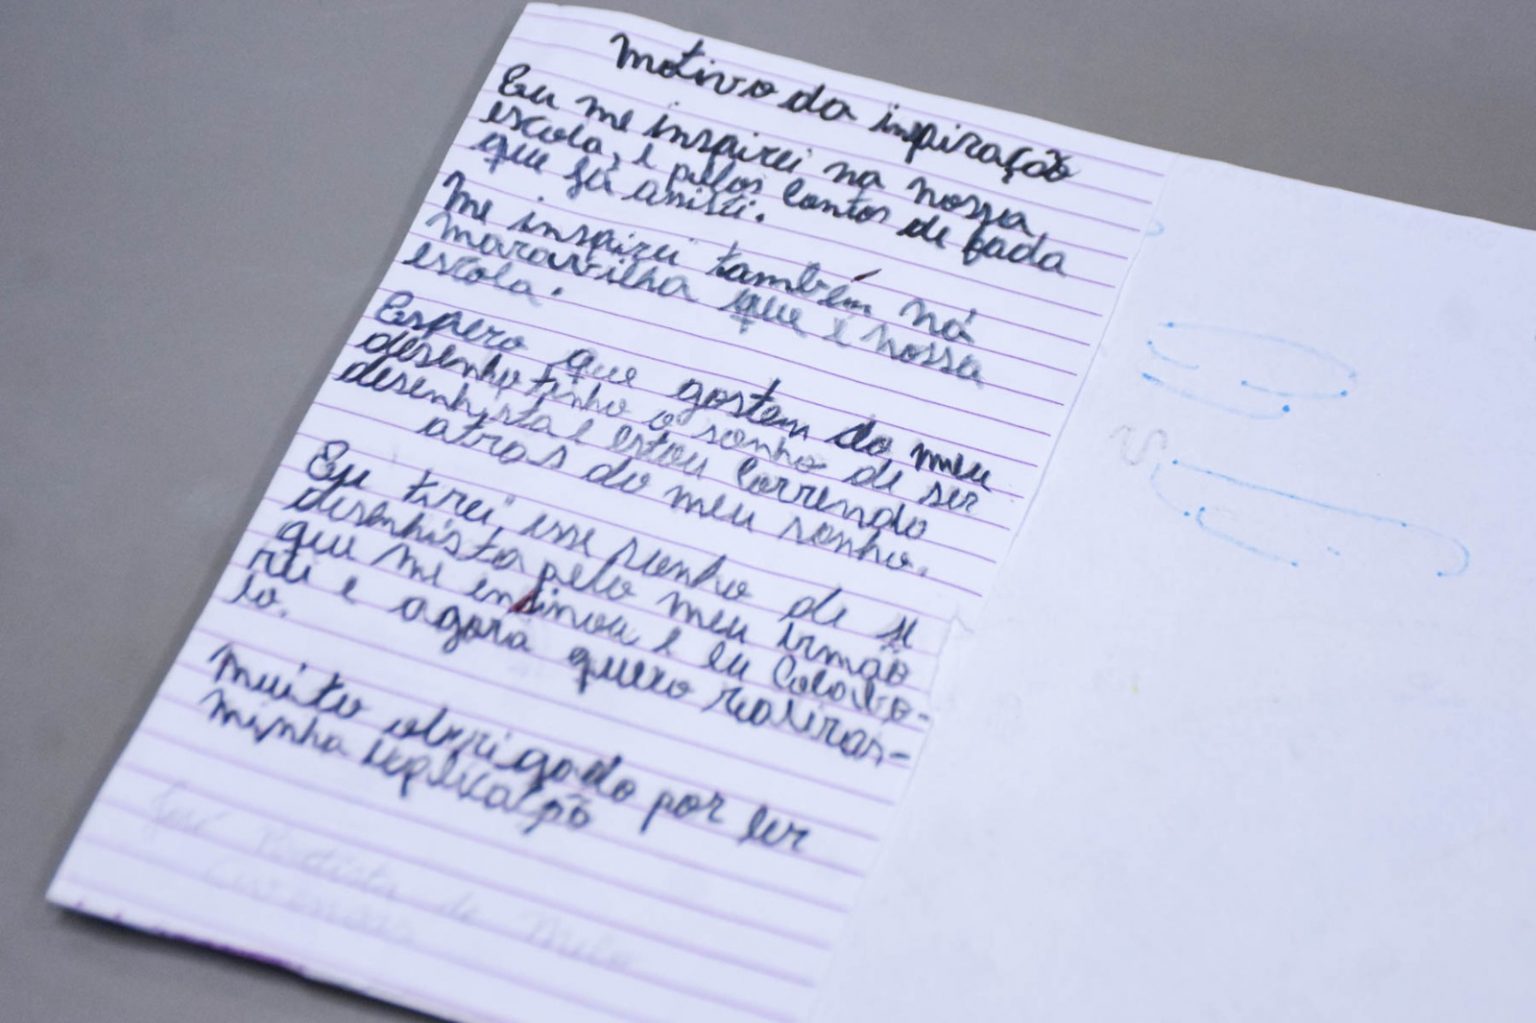 Motivo da inspiração
Eu me inspirei na nossa
escola, e pelos contos de fada
que já assisti.
Me inspirei também ná
maravilha que e nossa
escola.
Espero que gostem do meu
desenho tinho o sonho de ser
desenhista e estou correndo
atras do meu sonho.
Eu tirei esse sonho de se
desenhista pelo meu irmão
que me ensinou e eu colabo-
rei e agora quero realizas-
lo.
Muito obrigado por ler
minha replicalção
José Batista de Melo